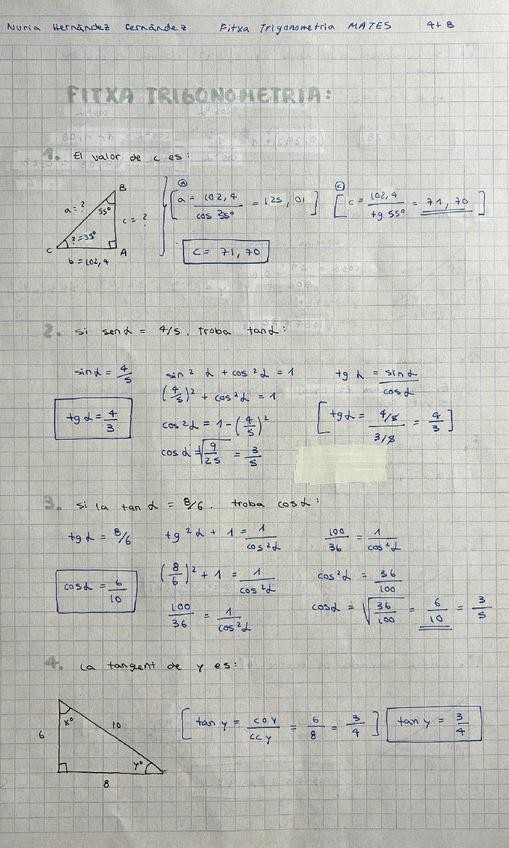 Nuria Hernández Fernández Fitxa Trigonometria MATES 4t B
FITXA TRIGONOMETRIA:
1. El valor de c es:
B
a = ?
55º
c = ?
? = 35º
C
A
b = 102,4
ⓐ [ a = 102,4 / cos 35º = 125,01 ]
ⓒ [ c = 102,4 / tg 55º = 71,70 ]
C = 71,70
2. Si senα = 4/5. troba tanα:
sinα = 4/5
tg α = 4/3
sin² α + cos² α = 1
(4/5)² + cos²α = 1
cos²α = 1 - (4/5)²
cos α = √9/25 = 3/5
tg α = sinα / cosα
[ tgα = 4/5 / 3/5 = 4/3 ]
3. Si la tan α = 8/6. troba cosα:
tg α = 8/6
cosα = 6/10
tg²α + 1 = 1 / cos²α
(8/6)² + 1 = 1 / cos²α
100/36 = 1 / cos²α
100/36 = 1 / cos²α
cos²α = 36/100
cosα = √36/100 = 6/10 = 3/5
4. La tangent de y es:
6
xº
10
yº
8
[ tan y = CO Y / CC Y = 6/8 = 3/4 ]
tan y = 3/4